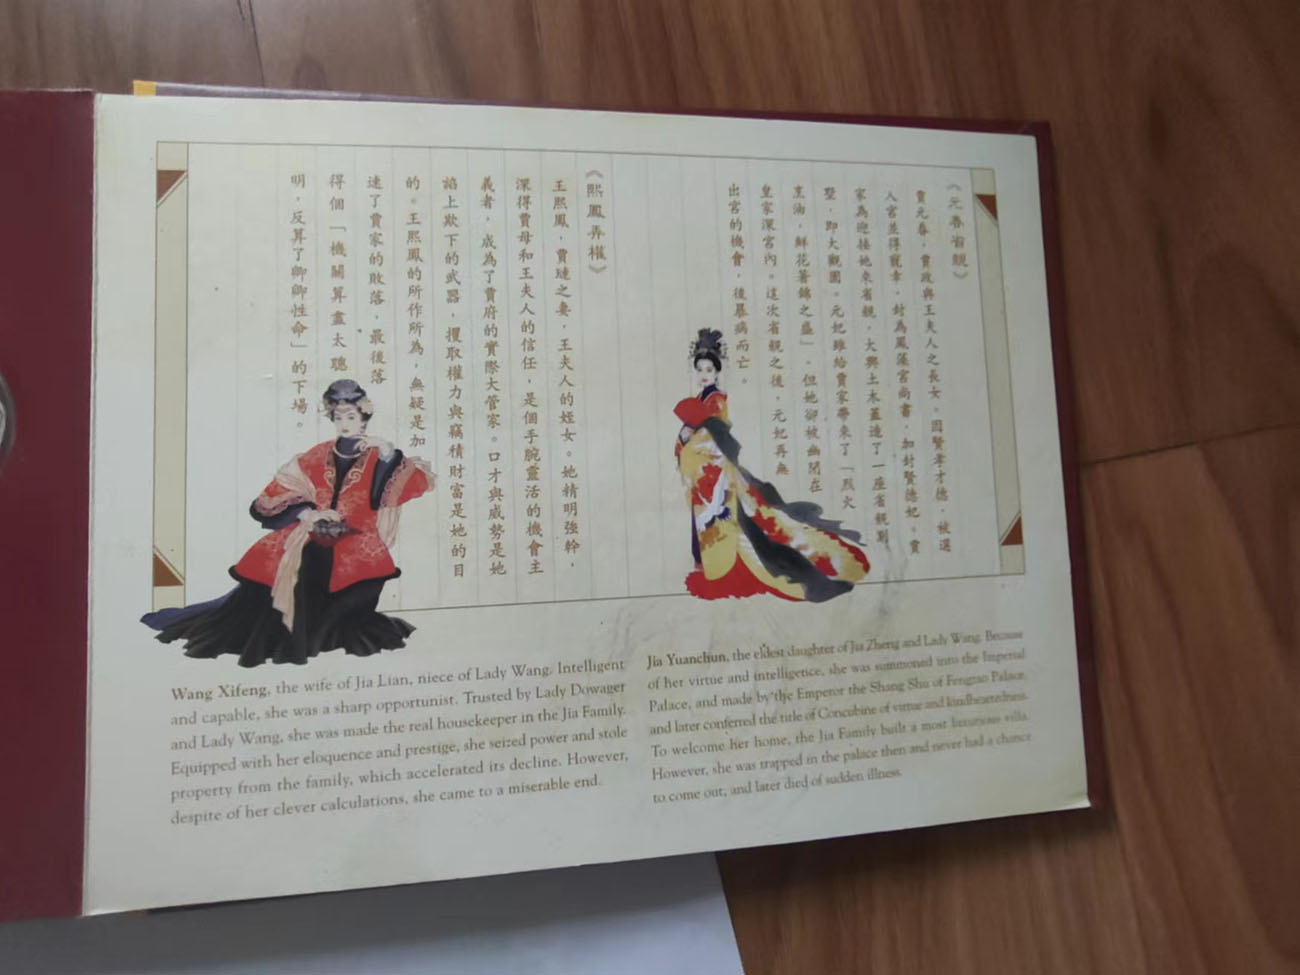 《元春省親》
賈元春，賈政與王夫人之長女。因賢孝才德，被選
入宮並得寵幸，封為鳳藻宮尚書，加封賢德妃。賈
家為迎接她來省親，大興土木蓋造了一座省親別
墅，即大觀園。元妃雖給賈家帶來了「烈火
烹油，鮮花著錦之盛」。但她卻被幽閉在
皇家深宮內。這次省親之後，元妃再無
出宮的機會，後暴病而亡。
《熙鳳弄權》
王熙鳳，賈璉之妻，王夫人的姪女。她精明強幹，
深得賈母和王夫人的信任，是個手腕靈活的機會主
義者，成為了賈府的實際大管家。口才與威勢是她
諂上欺下的武器，攫取權力與竊積財富是她的目
的。王熙鳳的所作所為，無疑是加
速了賈家的敗落，最後落
得個「機關算盡太聰
明，反算了卿卿性命」的下場。
Wang Xifeng, the wife of Jia Lian, niece of Lady Wang. Intelligent
and capable, she was a sharp opportunist. Trusted by Lady Dowager
and Lady Wang, she was made the real housekeeper in the Jia Family.
Equipped with her eloquence and prestige, she seized power and stole
property from the family, which accelerated its decline. However,
despite of her clever calculations, she came to a miserable end.
Jia Yuanchun, the eldest daughter of Jia Zheng and Lady Wang. Because
of her virtue and intelligence, she was summoned into the Imperial
Palace, and made by the Emperor the Shang Shu of Fengzao Palace,
and later conferred the title of Concubine of virtue and kindheartedness.
To welcome her home, the Jia Family built a most luxurious villa.
However, she was trapped in the palace then and never had a chance
to come out, and later died of sudden illness.